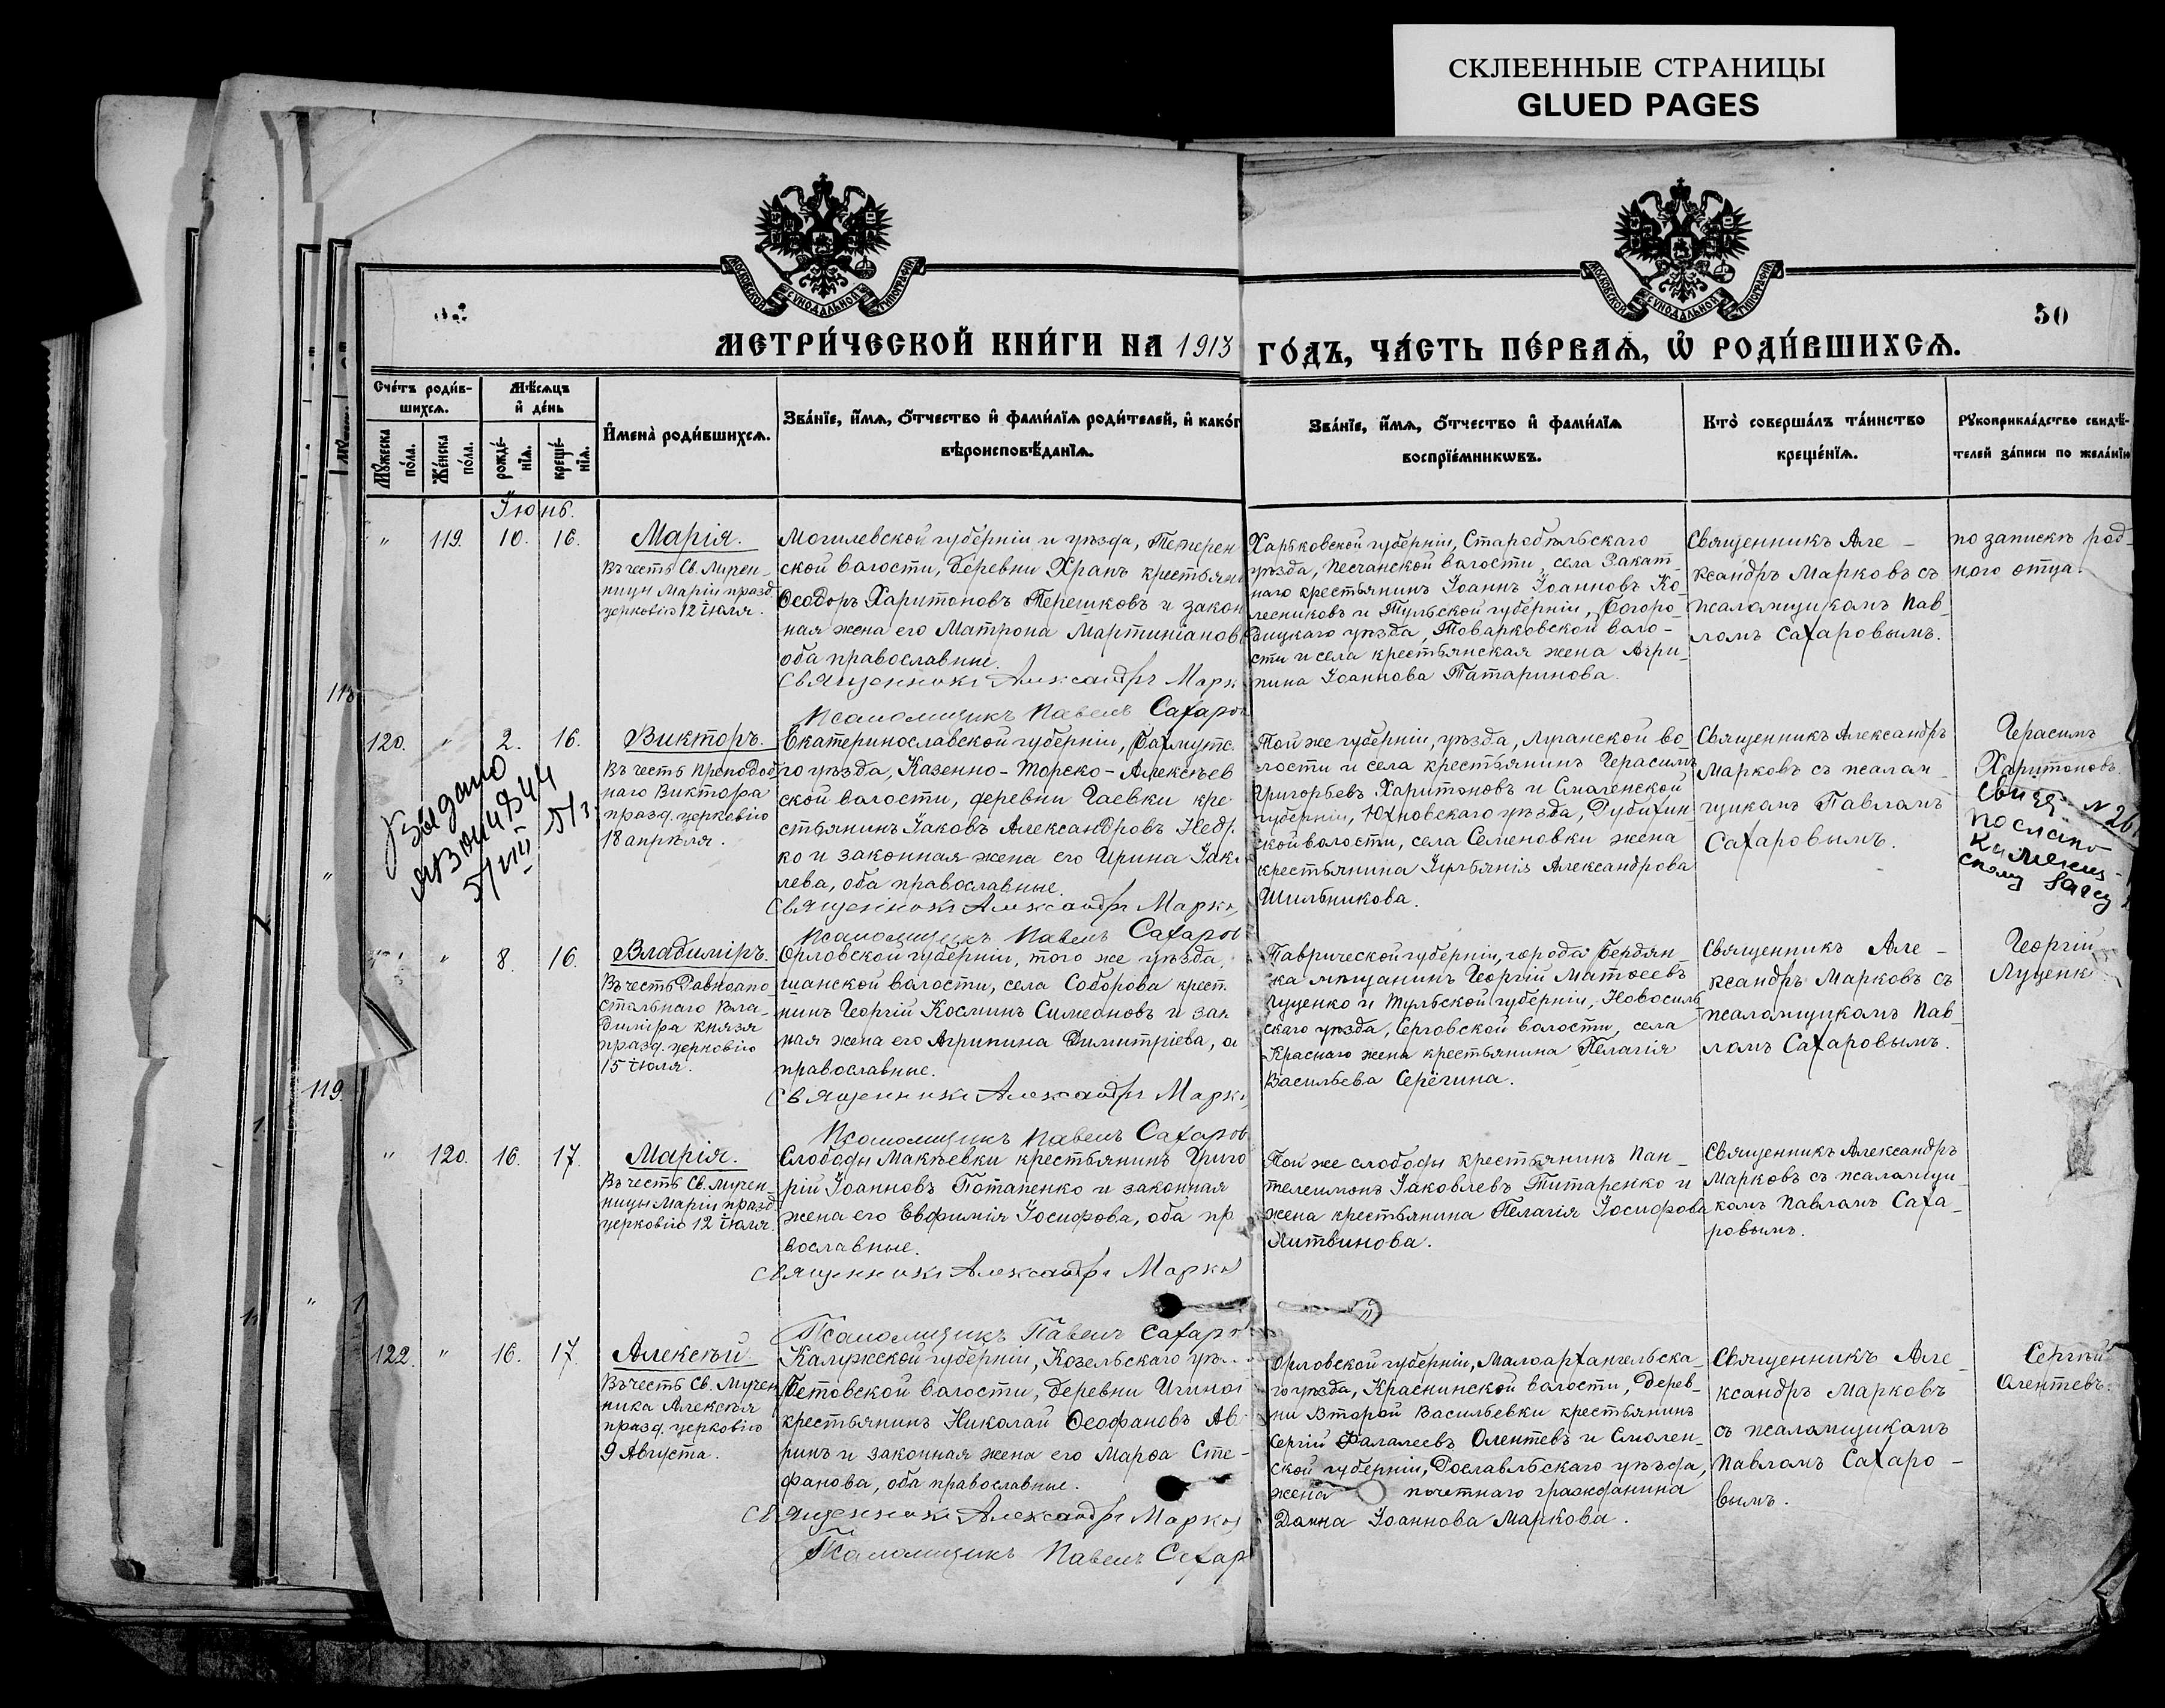 СКЛЕЕННЫЕ СТРАНИЦЫ
GLUED PAGES
МОСКОВСКОЙ СѴНОДАЛЬНОЙ ТИПОГРАФІИ
МОСКОВСКОЙ СѴНОДАЛЬНОЙ ТИПОГРАФІИ
30
МЕТРИ́ЧЕСКОЙ КНИ́ГИ НА 1913
ГО́ДЪ, ЧА́СТЬ ПЕ́РВАѦ, Ѡ РОДИ́ВШИХСѦ.
Сче́тъ роди́в-
шихсѧ.
Мѣ́сяцъ
и҆ де́нь
Мꙋ́жеска по́ла.
Же́нска по́ла.
рожде́-нїѧ.
креще́-нїѧ.
И҆мена̀ роди́вшихсѧ.
Зва́нїе, и҆́мѧ, ѻ҆́тчество и҆ фами́лїѧ роди́телей, и҆ како́г
вѣроисповѣ́данїѧ.
Зва́нїе, и҆́мѧ, ѻ҆́тчество и҆ фами́лїѧ
воспрїе́мникѡвъ.
Кто̀ соверша́лъ та́инство
креще́нїѧ.
Рꙋкоприкла́дство свидѣ́-
телей за́писи по жела́нїю
Іюнь.
" 119. 10. 16.
Марія.
Въ честь Св. Мучен-
ницы Маріи празд.
церковію 12 іюля.
Могилевской губерніи и уѣзда, Тетерен
ской волости, деревни Хранъ крестьяни
Ѳеодоръ Харитоновъ Терешковъ и закон
ная жена его Матрона Мартиніанов
оба православные.
Священникъ Александръ Марк
Псаломщикъ Павелъ Сахаров
Харьковской губерніи, Старобѣльскаго
уѣзда, Песчанской волости, села Закат-
наго крестьянинъ Іоаннъ Іоанновъ Ко-
лесниковъ и Тульской губерніи, Богоро-
дицкаго уѣзда, Товарковской воло-
сти и села крестьянская жена Агри-
пина Іоаннова Татаринова.
Священникъ Але-
ксандръ Марковъ съ
псаломщикомъ Пав-
ломъ Сахаровымъ.
по запискѣ род-
ного отца.
120. " 2. 16.
Выдано
5/VIII
Викторъ.
Въ честь Преподоб
наго Виктора
празд. церковію
18 апрѣля.
Екатеринославской губерніи, Бахмутс.
го уѣзда, Казенно-Торско-Алексѣев
ской волости, деревни Гаевки кре
стьянинъ Іаковъ Александровъ Недр.
ко и законная жена его Ирина Іак
лева, оба православные.
Священникъ Александръ Марк
Псаломщикъ Павелъ Сахаров
Той же губерніи, уѣзда, Луганской во-
лости и села крестьянинъ Герасимъ
Григорьевъ Харитоновъ и Смоленской
губерніи, Юхновскаго уѣзда, Дубихин
ской волости, села Семеновки жена
крестьянина Іуліанія Александрова
Шильникова.
Священникъ Александръ
Марковъ съ псалом-
щикомъ Павломъ
Сахаровымъ.
Герасимъ
Харитоновъ.
Свид. N 26
послано
" 8. 16.
Владиміръ.
Въ честь Равноапо-
стольнаго Вла-
диміра князя
празд. церковію
15 іюля.
Орловской губерніи, того же уѣзда,
шанской волости, села Соборова крест.
нинъ Георгій Косминъ Симеоновъ и зак
ная жена его Агрипина Димитріева, о
православные.
Священникъ Александръ Марк
Псаломщикъ Павелъ Сахаров
Таврической губерніи, города Бердян-
ска мѣщанинъ Георгій Матѳеевъ
Луценко и Тульской губерніи, Новосиль-
скаго уѣзда, Серговской волости, села
Краснаго жена крестьянина Пелагія
Васильева Серёгина.
Священникъ Але-
ксандръ Марковъ съ
псаломщикомъ Пав-
ломъ Сахаровымъ.
Георгій
Луценк
" 120. 16. 17.
Марія.
Въ честь Св. Мучен-
ницы Маріи празд.
церковію 12 іюля.
Слободы Макѣевки крестьянинъ Григо
рій Іоанновъ Потапенко и законная
жена его Евфимія Іосифова, оба пр
вославные.
Священникъ Александръ Марк
Псаломщикъ Павелъ Сахаров
Той же слободы крестьянинъ Пан-
телеимонъ Іаковлевъ Титаренко и
жена крестьянина Пелагія Іосифова
Литвинова.
Священникъ Александръ
Марковъ съ псаломщи-
комъ Павломъ Саха-
ровымъ.
122. " 16. 17.
Алексѣй.
Въ честь Св. Мучен
ника Алексѣя
празд. церковію
9 Августа.
Калужской губерніи, Козельскаго уѣ
Бетовской волости, деревни
крестьянинъ Николай Ѳеофановъ Ав
ринъ и законная жена его Марѳа Сте-
фанова, оба православные.
Священникъ Александръ Марк
Псаломщикъ Павелъ Сахар
Орловской губерніи, Малоархангельска-
го уѣзда, Краснинской волости, дерев-
ни Второй Васильевки крестьянинъ
Сергій Фалалеевъ Олентевъ и Смолен-
ской губерніи, Рославльскаго уѣзда,
жена почетнаго гражданина
Домна Іоаннова Маркова.
Священникъ Але-
ксандръ Марковъ
съ псаломщикомъ
Павломъ Сахаро-
вымъ.
Сергѣй
Олентевъ.
118
119.